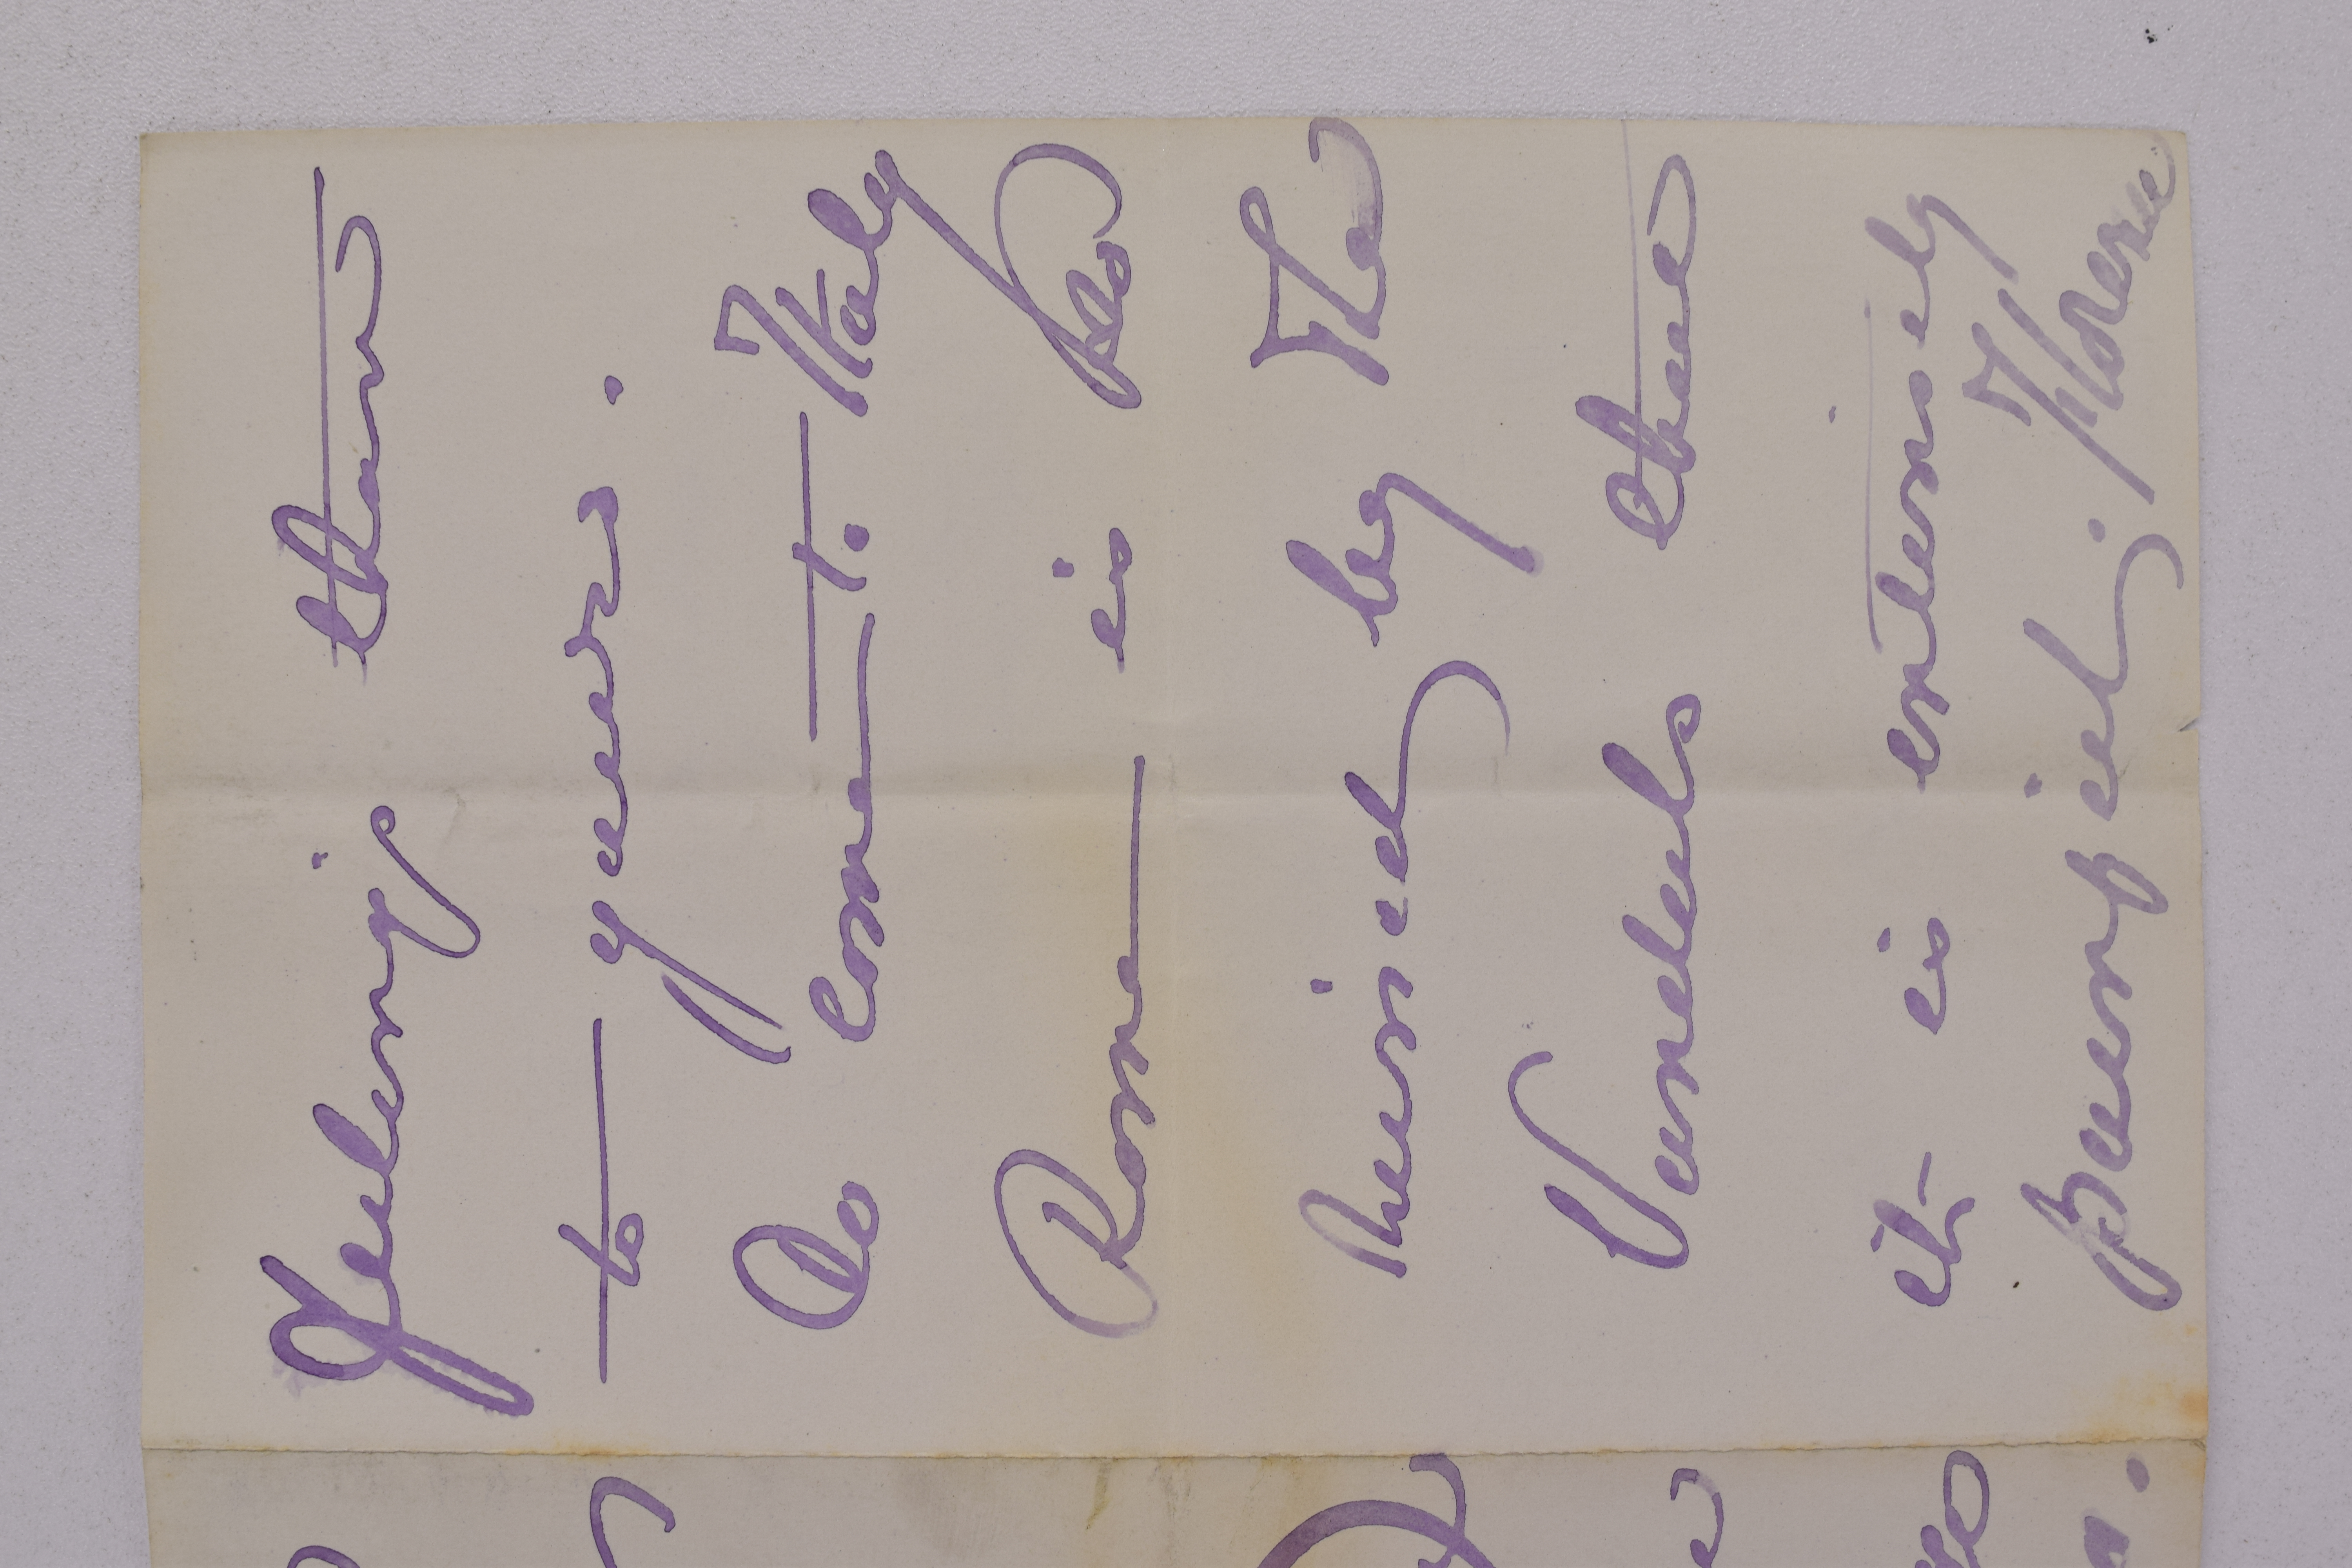 feeling than
to yours.
Do come to Italy
Rome is so
ruined by the
Vandals that
it is entirely
painful. Florence